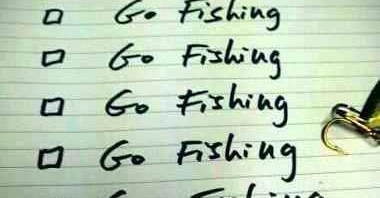 ☐ Go Fishing
☐ Go Fishing
☐ Go Fishing
☐ Go Fishing
Go Fishing